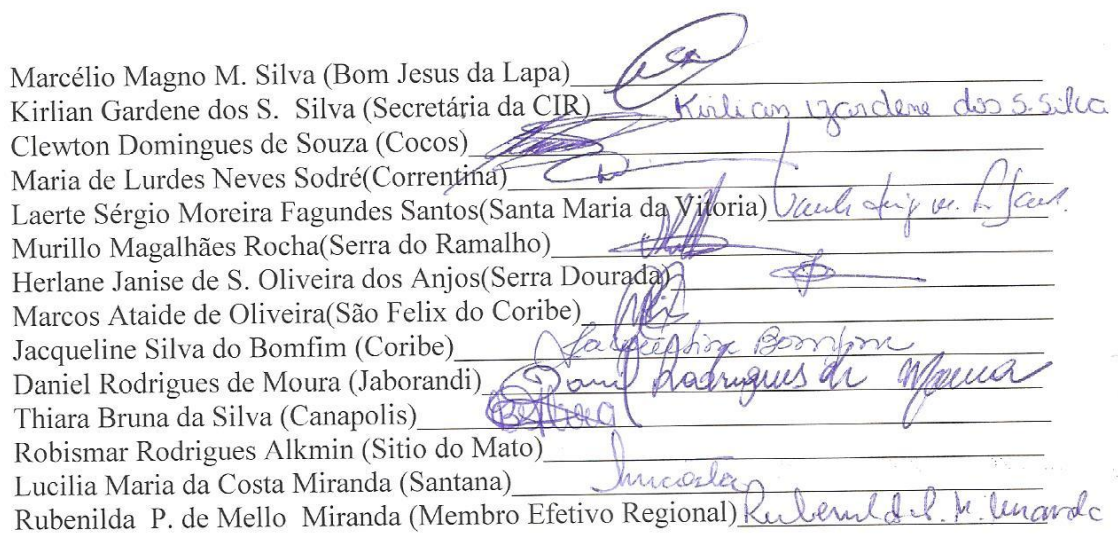 Marcélio Magno M. Silva (Bom Jesus da Lapa)
Kirlian Gardene dos S. Silva (Secretária da CIR) Kirlian Gardene dos S. Silva
Clewton Domingues de Souza (Cocos)
Maria de Lurdes Neves Sodré(Correntina)
Laerte Sérgio Moreira Fagundes Santos(Santa Maria da Vitoria)
Murillo Magalhães Rocha(Serra do Ramalho)
Herlane Janise de S. Oliveira dos Anjos(Serra Dourada)
Marcos Ataide de Oliveira(São Felix do Coribe)
Jacqueline Silva do Bomfim (Coribe) Jacqueline Bomfim
Daniel Rodrigues de Moura (Jaborandi) Daniel Rodrigues de Moura
Thiara Bruna da Silva (Canapolis)
Robismar Rodrigues Alkmin (Sitio do Mato)
Lucilia Maria da Costa Miranda (Santana)
Rubenilda P. de Mello Miranda (Membro Efetivo Regional) Rubenilda P. M. Miranda